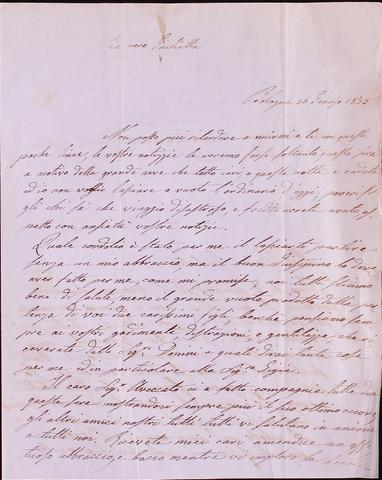 Mia cara Giulietta
Bologna 26 Genajo 1855
Non posso più ritardare a unirmi a te con queste
poche linee, le vostre notizie le avremo forse soltanto questa sera
a motivo della grande neve che tutto ieri e questa notte è caduta
ed io non voglio lasciare a vuoto l'ordinario d'oggi, poveri fi
gli chi sà che viaggio disastroso, e freddo avrete avuto, as
petto con ansietà vostre notizie.
Quale cordoglio è stato per me il lasciarti partire
senza un mio abbraccio, ma il buon deve
aver fatto per me, come mi promise; noi tutti stiamo
bene di salute, meno il grande vuoto, prodotto dalla par
tenza di voi due carissimi figli, benché pensiamo sem
pre ai vostri godimenti distrazioni, e gentilezze, che ri
ceverete dalli Sigri a quali dirai tante cose
per me ed in particolare alla Sigra
Il caro Sigr Avvocato ci a fatto compagnia tutte due
queste sere mostrandosi sempre più il suo ottimo cuore,
gli altri amici nostri tutti tutti vi salutano in unione
a tutti noi. Ricevete miei cari amendue un affet
tuoso abbraccio, e bacio mentre vi imploro la